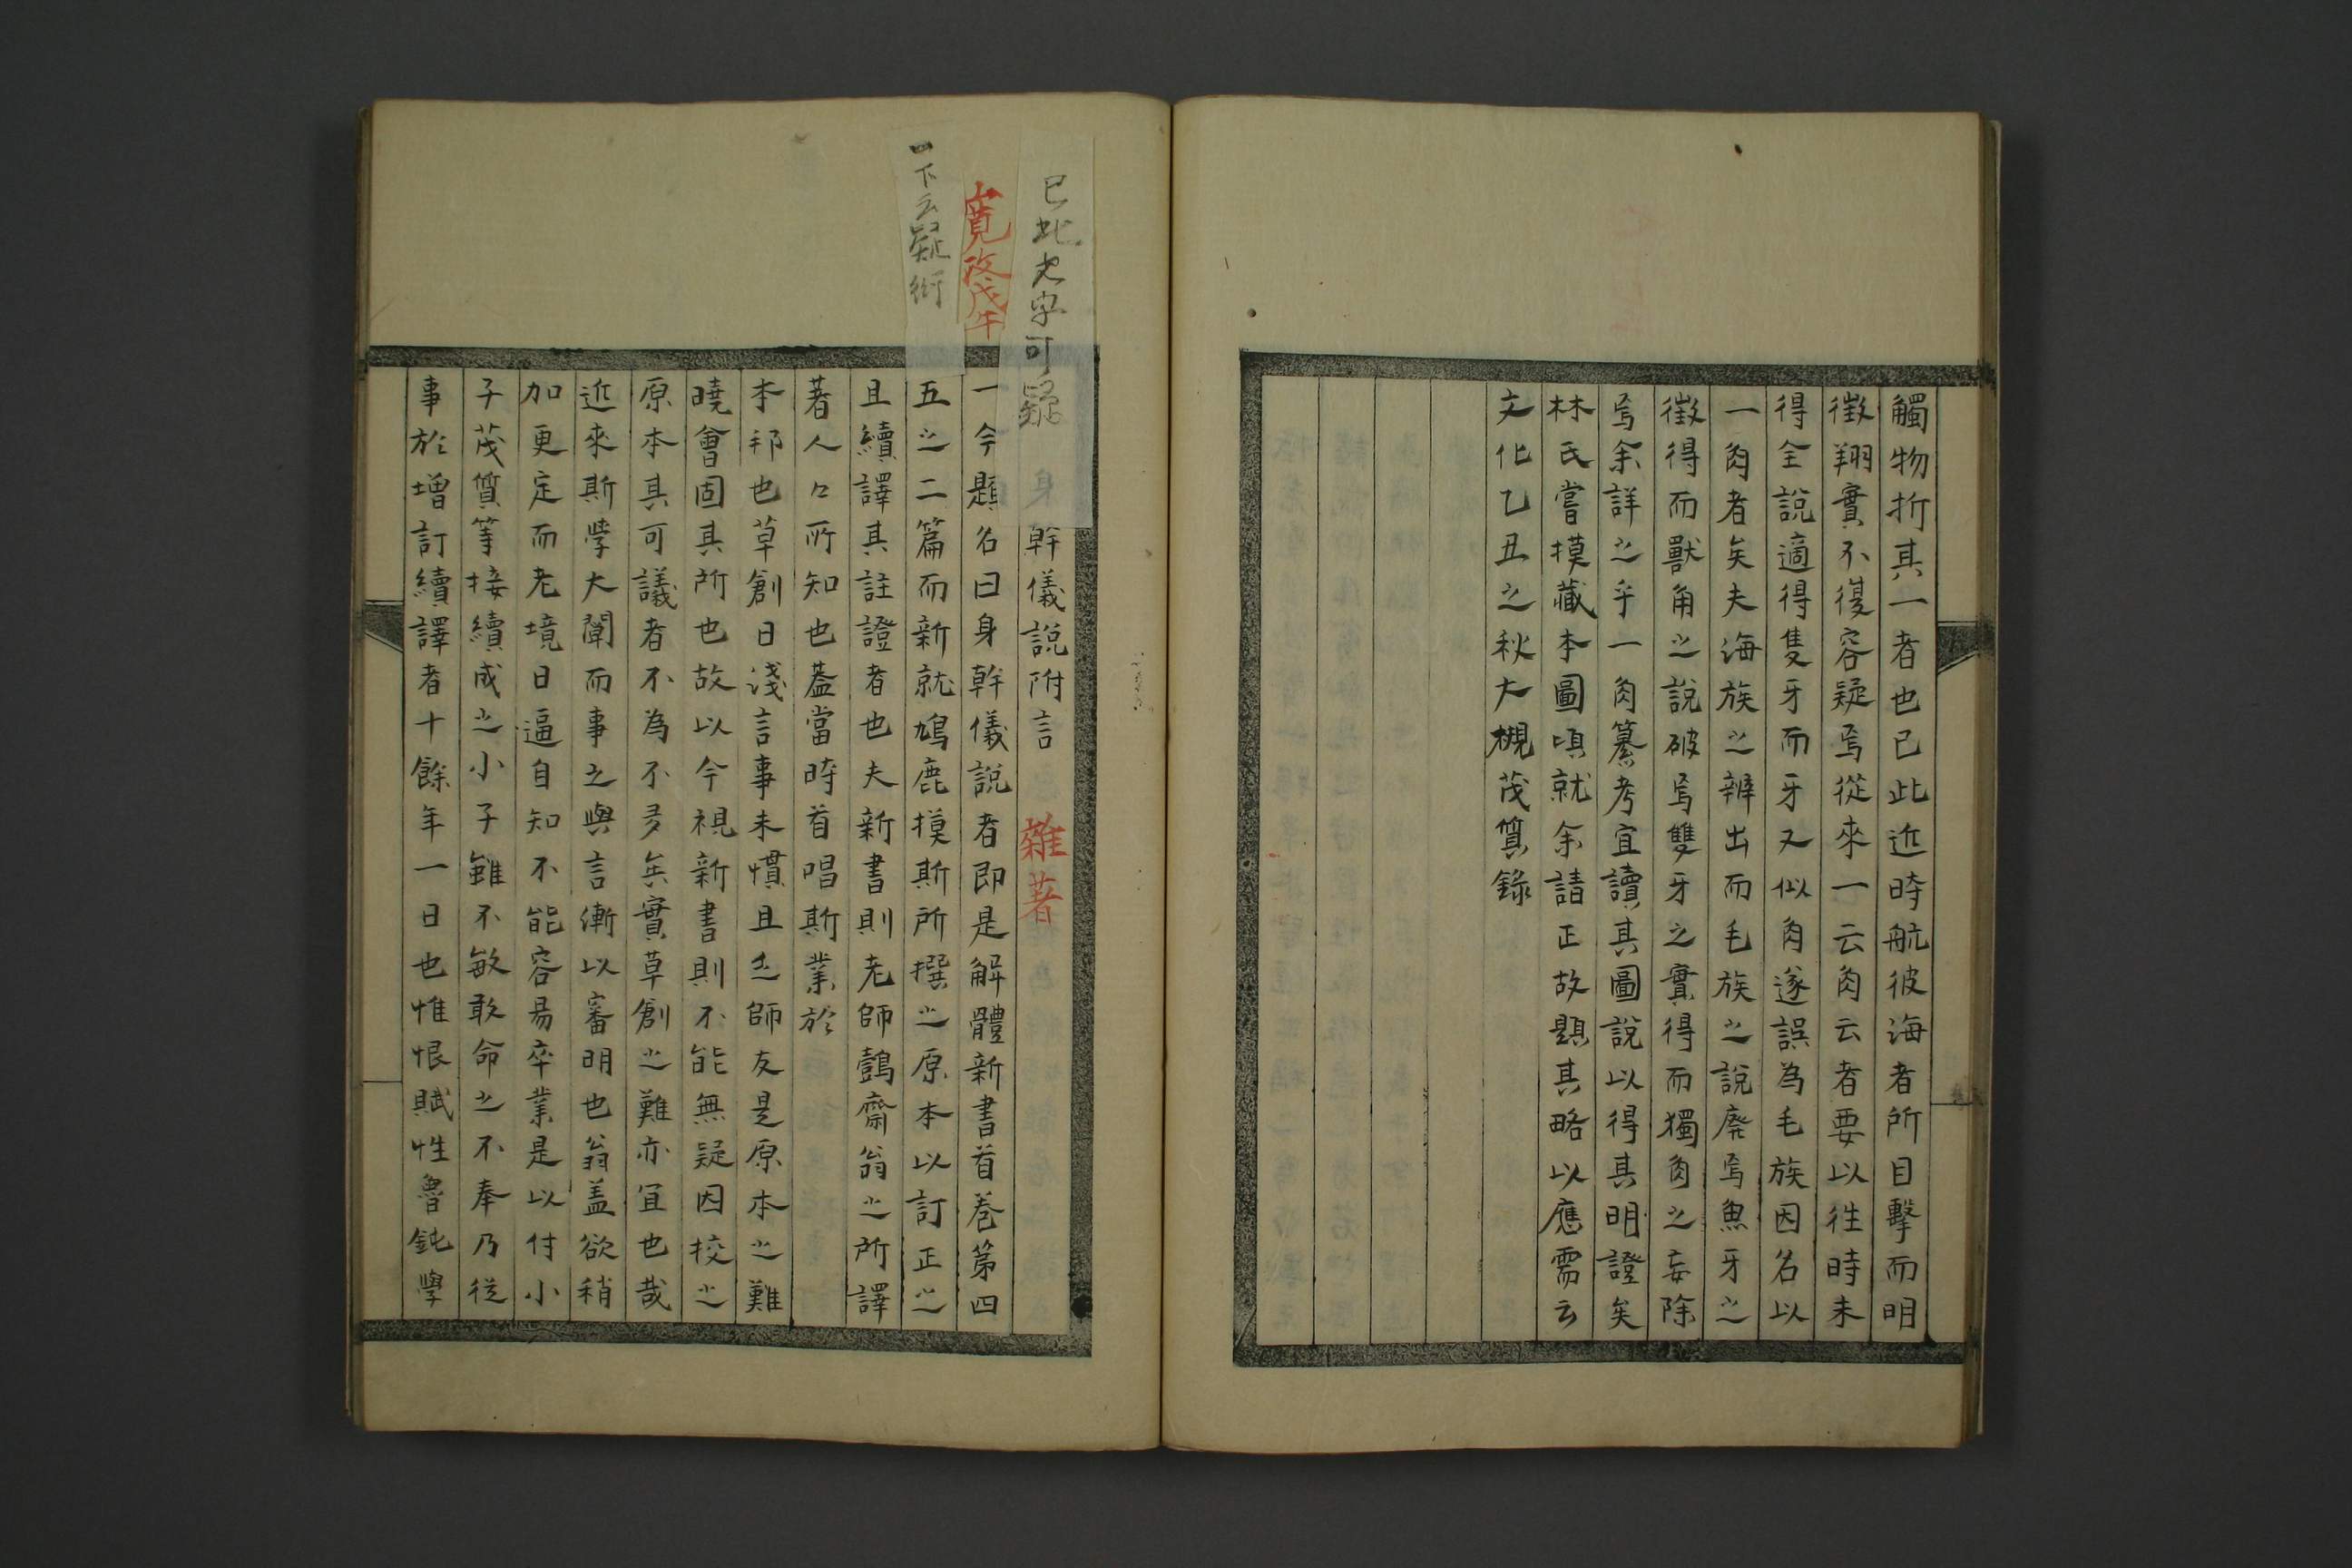 觸物折其一者也已此近時航彼海者所目擊而明
徴翔實不復容疑焉從來一云角云者要以徃時未
得全說適得隻牙而牙又似角遂誤為毛族因名以
一角者矣夫海族之辨出而毛族之說廃焉魚牙之
徴得而獸角之說破焉雙牙之實得而獨角之妄除
焉余詳之乎一角纂考宜讀其圖說以得其明證矣
林氏嘗摸藏本圖頃就余請正故題其略以應需云
文化乙丑之秋大槻茂質錄
身幹儀說附言 雜著
一今題名曰身幹儀說者即是解體新書首卷第四
五之二篇而新就鳩鹿摸斯所撰之原本以訂正之
且續譯其註證者也夫新書則老師鷧齋翁之所譯
著人々所知也葢當時首唱斯業於
本邦也草創日淺言事未慣且乏師友是原本之難
曉會固其所也故以今視新書則不能無疑因挍之
原本其可議者不為不多矣實草創之難亦宜也哉
近來斯學大闡而事之與言漸以審明也翁盖欲稍
加更定而老境日逼自知不能容易卒業是以付小
子茂質等接續成之小子雖不敏敢命之不奉乃從
事於增訂續譯者十餘年一日也惟恨賦性魯鈍學
寛政戊午
下云疑衍